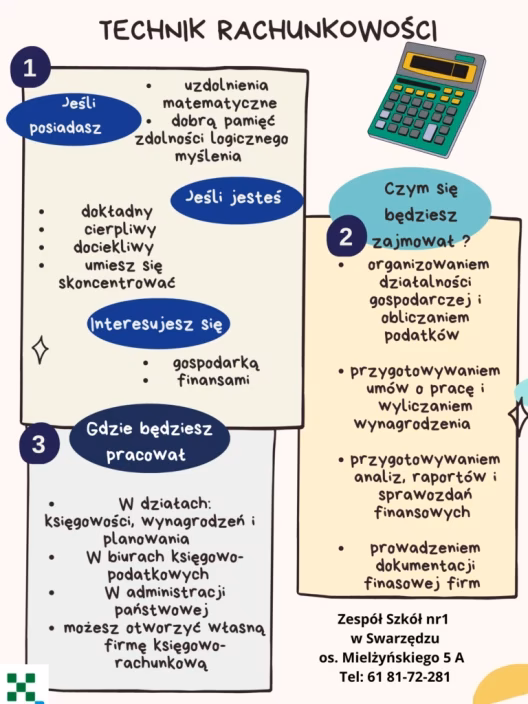 TECHNIK RACHUNKOWOŚCI
1
Jeśli
posiadasz
• uzdolnienia
matematyczne
• dobrą pamięć
zdolności logicznego
myślenia
Jeśli jesteś
• dokładny
• cierpliwy
• dociekliwy
• umiesz się
skoncentrować
Interesujesz się
• gospodarką
• finansami
Czym się
będziesz
zajmował ?
2
• organizowaniem
działalności
gospodarczej i
obliczaniem
podatków
• przygotowywaniem
umów o pracę i
wyliczaniem
wynagrodzenia
• przygotowywaniem
analiz, raportów i
sprawozdań
finansowych
• prowadzeniem
dokumentacji
finasowej firm
3
Gdzie będziesz
pracował
• W działach:
księgowości, wynagrodzeń i
planowania
• W biurach księgowo-
podatkowych
• W administracji
państwowej
• możesz otworzyć własną
firmę księgowo-
rachunkową
Zespół Szkół nr1
w Swarzędzu
os. Mielżyńskiego 5 A
Tel: 61 81-72-281